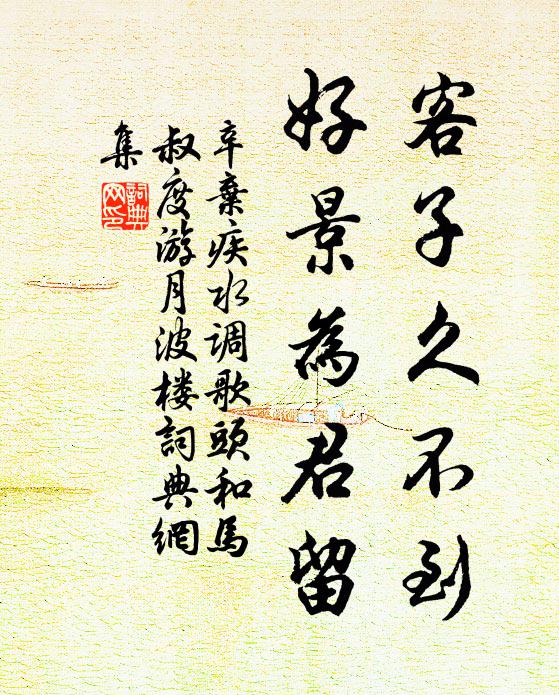 客子久不到
好景為君留
辛棄疾水调歌頭和馬
叔度游月波楼詞典網
集
詞典网印